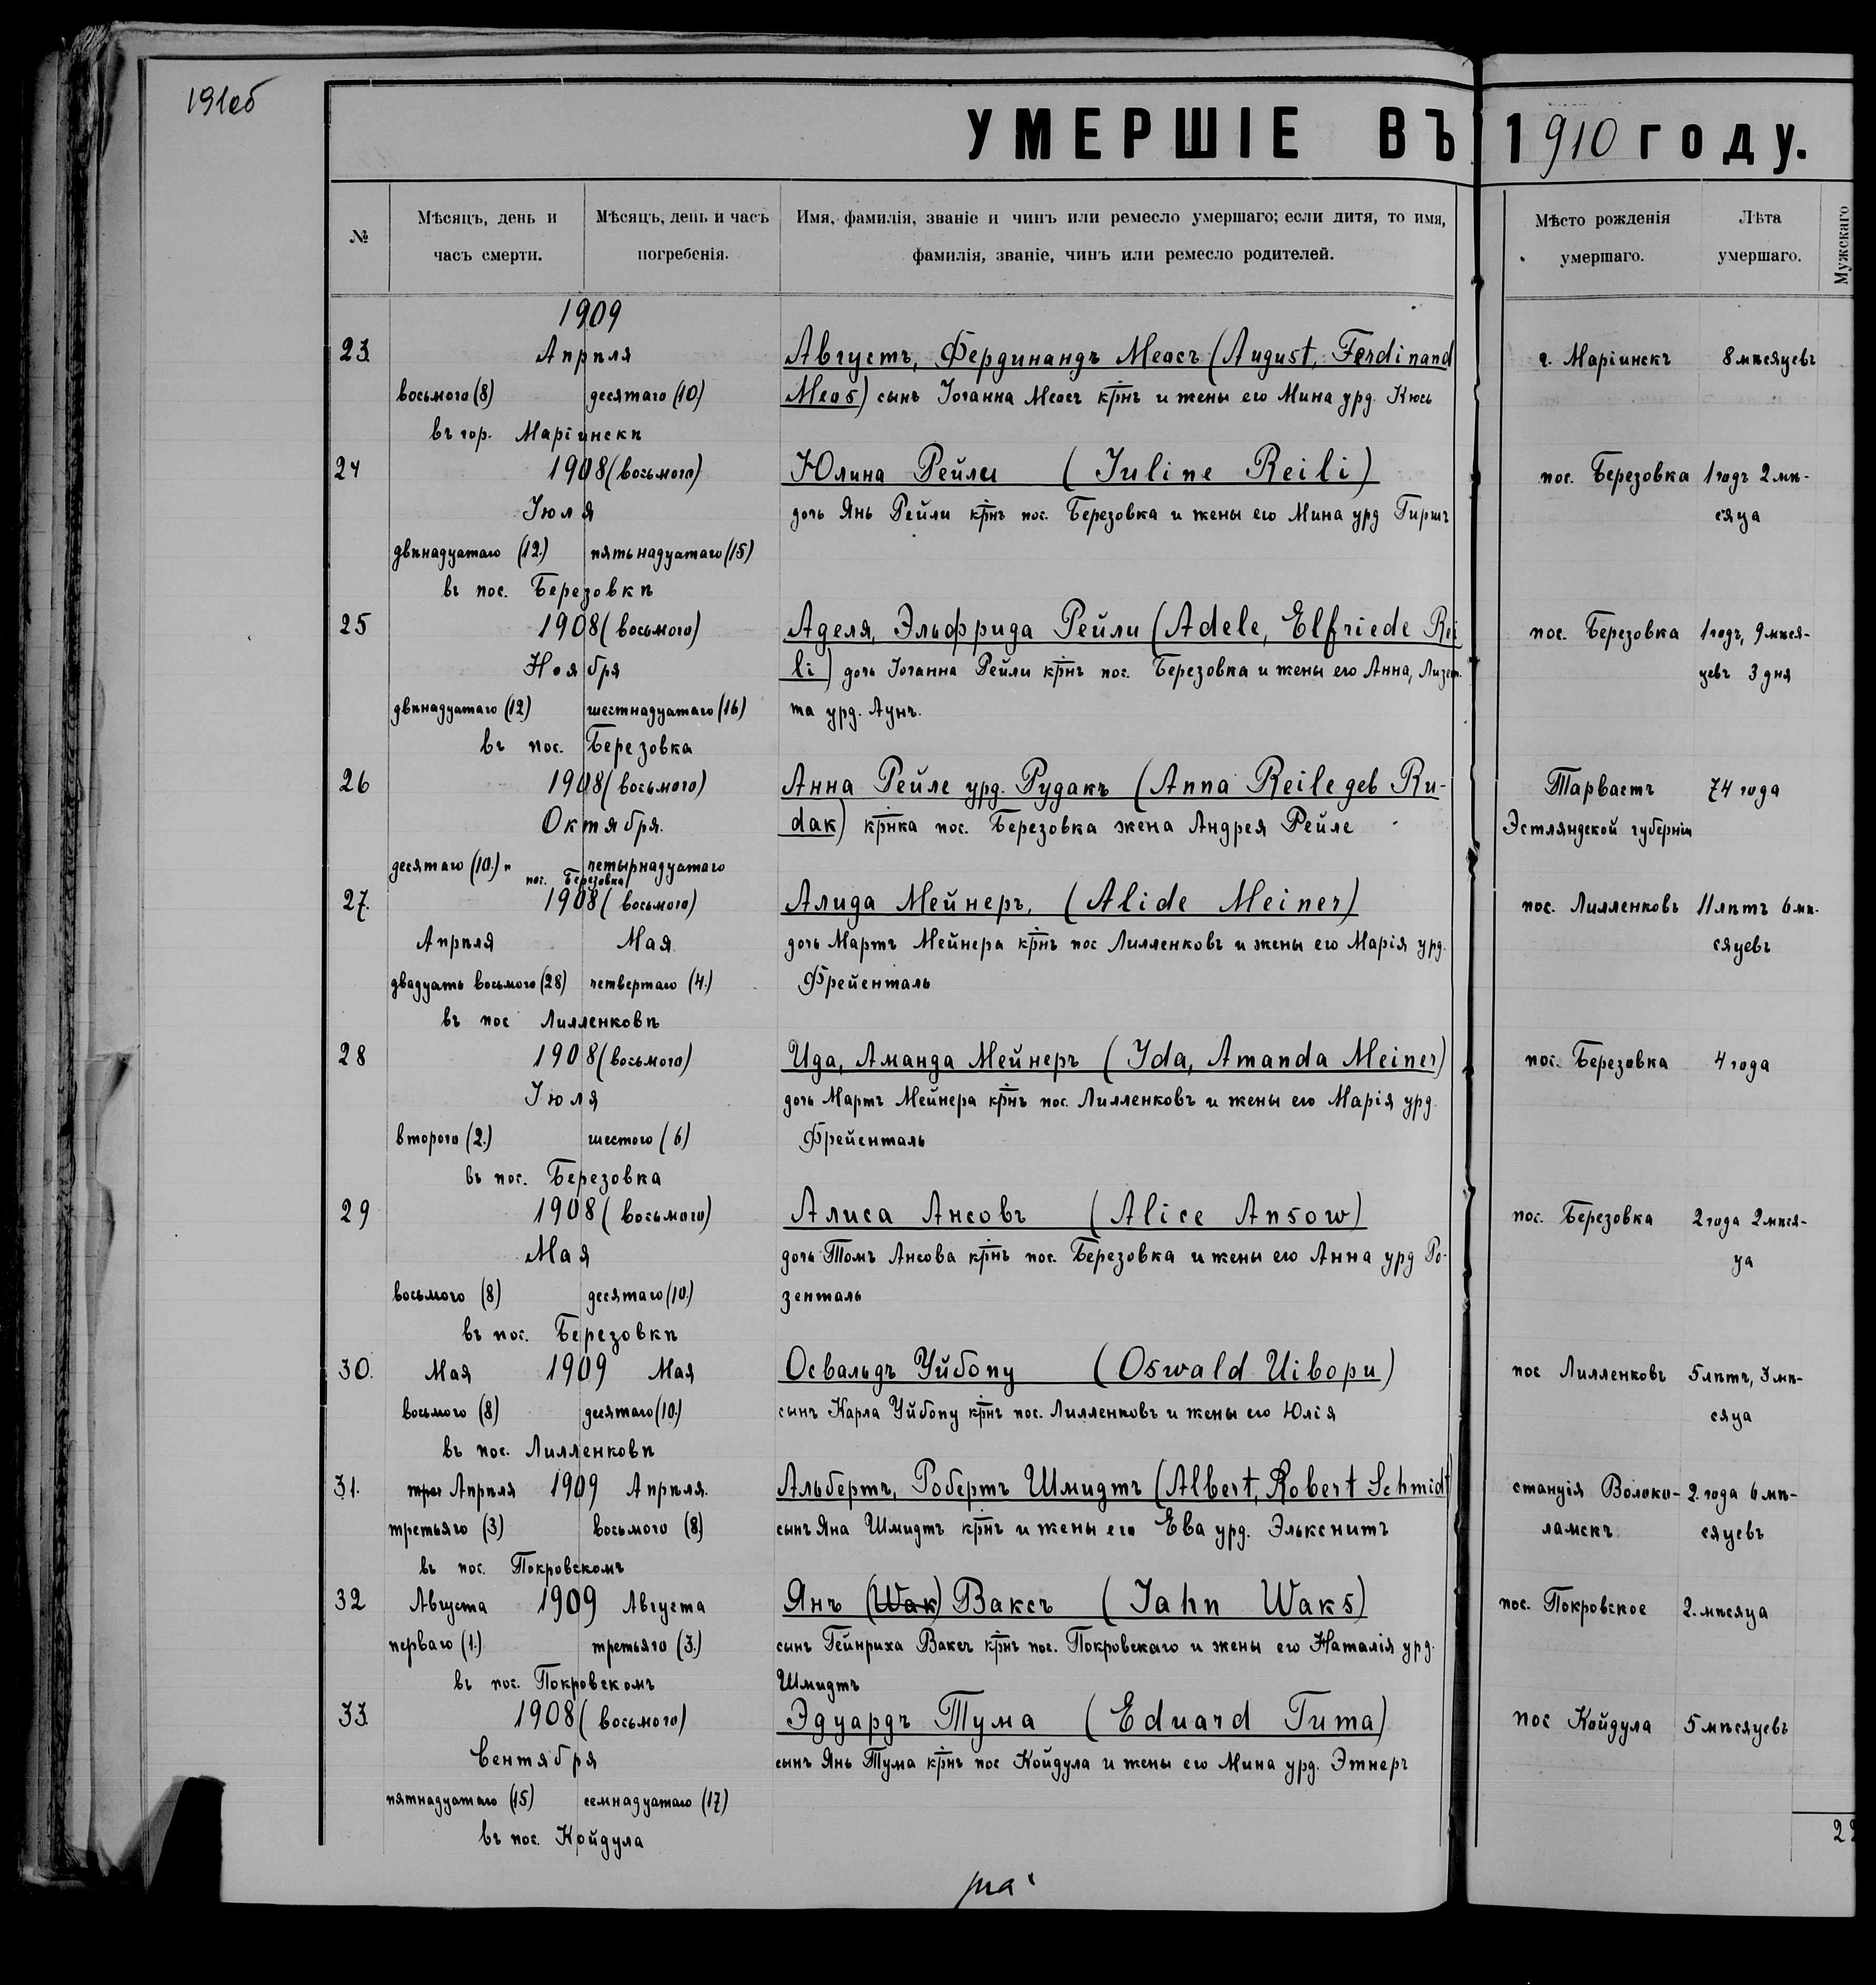 191об
УМЕРШІЕ ВЪ 1910 году.
№
Мѣсяцъ, день и часъ смерти.
Мѣсяцъ, день и часъ погребенія.
Имя, фамилія, званіе и чинъ или ремесло умершаго; если дитя, то имя,
фамилія, званіе, чинъ или ремесло родителей.
Мѣсто рожденія умершаго.
Лѣта умершаго.
Мужскаго
1909
23. Апрѣля Августъ, Фердинандъ Меосъ (August, Ferdinand г. Маріинскъ 8 мѣсяцевъ
восьмого (8) десятаго (10.) Meos) сынъ Іоганна Меосъ крнъ и жены его Мина урд. Кюсь
въ гор. Маріинскѣ
24 1908 (восьмого) Юлина Рейли (Juline Reili) пос. Березовка 1 годъ 2 мѣ-
Іюля дочь Янъ Рейли крнъ пос. Березовка и жены его Мина урд Гиршъ сяца
двѣнадцатаго (12.) пятьнадцатаго (15)
въ пос. Березовкѣ
25 1908 (восьмого) Аделя, Эльфрида Рейли (Adele, Elfriede Rei пос. Березовка 1 годъ, 9 мѣся-
Ноября li) дочь Іоганна Рейли крнъ пос. Березовка и жены его Анна, Лизет- цевъ 3 дня
двѣнадцатаго (12) шестнадцатаго (16) та урд. Аунъ.
въ пос. Березовка
26 1908 (восьмого) Анна Рейле урд. Рудакъ (Anna Reile geb Ru- Тарвастъ 74 года
Октября. dak) крнка пос. Березовка жена Андрея Рейле Эстляндской губерніи
десятаго (10.) четырнадцатаго
пос. Березовка
27. 1908 (восьмого) Алида Мейнеръ, (Alide Meiner) пос. Лилленковъ 11 лѣтъ 6 мѣ-
Апрѣля Мая дочь Мартъ Мейнера крнъ пос Лилленковъ и жены его Марія урд. сяцевъ
двадцать восьмого (28) четвертаго (4.) Фрейенталь
въ пос Лилленковѣ
28 1908 (восьмого) Ида, Аманда Мейнеръ (Ida, Amanda Meiner) пос. Березовка 4 года
Іюля дочь Мартъ Мейнера крнъ пос. Лилленковъ и жены его Марія урд.
второго (2.) шестого (6) Фрейенталь
въ пос. Березовка
29 1908 (восьмого) Алиса Ансовъ (Alice Ansow) пос. Березовка 2 года 2 мѣся-
Мая дочь Томъ Ансова крнъ пос. Березовка и жены его Анна урд Ро- ца
восьмого (8) десятаго (10.) зенталь
въ пос. Березовкѣ
30. Мая 1909 Мая Освальдъ Уйбопу (Oswald Uibopu) пос Лилленковъ 5 лѣтъ, 3 мѣ-
восьмого (8) десятаго (10.) сынъ Карла Уйбопу крнъ пос. Лилленковъ и жены его Юлія сяца
въ пос. Лилленковѣ
31. Апрѣля 1909 Апрѣля. Альбертъ, Робертъ Шмидтъ (Albert, Robert Schmidt станція Волоко- 2. года 6 мѣ-
третьяго (3) восьмого (8) сынъ Яна Шмидтъ крнъ и жены его Ева урд. Элькснитъ ламскъ сяцевъ
въ пос. Покровскомъ
32 Августа 1909 Августа Янъ (Wak) Ваксъ (Jahn Waks) пос. Покровское 2. мѣсяца
перваго (1.) третьяго (3.) сынъ Гейнриха Ваксъ крнъ пос. Покровскаго и жены его Наталія урд.
въ пос. Покровскомъ Шмидтъ
33. 1908 (восьмого) Эдуардъ Тума (Eduard Tuma) пос Койдула 5 мѣсяцевъ
Сентября сынъ Янъ Тума крнъ пос Койдула и жены его Мина урд. Этнеръ
пятнадцатаго (15) семнадцатаго (17)
въ пос. Койдула
22